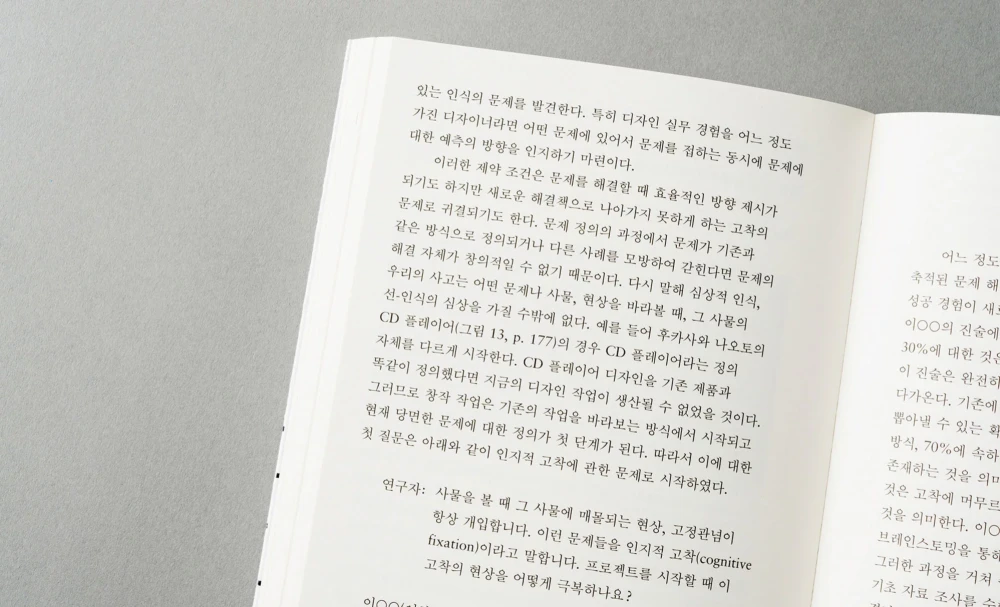 있는 인식의 문제를 발견한다. 특히 디자인 실무 경험을 어느 정도
가진 디자이너라면 어떤 문제에 있어서 문제를 접하는 동시에 문제에
대한 예측의 방향을 인지하기 마련이다.
이러한 제약 조건은 문제를 해결할 때 효율적인 방향 제시가
되기도 하지만 새로운 해결책으로 나아가지 못하게 하는 고착의
문제로 귀결되기도 한다. 문제 정의의 과정에서 문제가 기존과
같은 방식으로 정의되거나 다른 사례를 모방하여 갇힌다면 문제의
해결 자체가 창의적일 수 없기 때문이다. 다시 말해 심상적 인식,
우리의 사고는 어떤 문제나 사물, 현상을 바라볼 때, 그 사물의
선-인식의 심상을 가질 수밖에 없다. 예를 들어 후카사와 나오토의
CD 플레이어(그림 13, p. 177)의 경우 CD 플레이어라는 정의
자체를 다르게 시작한다. CD 플레이어 디자인을 기존 제품과
똑같이 정의했다면 지금의 디자인 작업이 생산될 수 없었을 것이다.
그러므로 창작 작업은 기존의 작업을 바라보는 방식에서 시작되고
현재 당면한 문제에 대한 정의가 첫 단계가 된다. 따라서 이에 대한
첫 질문은 아래와 같이 인지적 고착에 관한 문제로 시작하였다.
연구자: 사물을 볼 때 그 사물에 매몰되는 현상, 고정관념이
항상 개입합니다. 이런 문제들을 인지적 고착(cognitive
fixation)이라고 말합니다. 프로젝트를 시작할 때 이
고착의 현상을 어떻게 극복하나요?
어느 정도
축적된 문제 해
성공 경험이 새로
이○○의 진술에
30%에 대한 것은
이 진술은 완전히
다가온다. 기존에
뽑아낼 수 있는
방식, 70%에 속하
존재하는 것을 의미
것은 고착에 머무르
것을 의미한다. 이○
브레인스토밍을 통해
그러한 과정을 거쳐
기초 자료 조사를 수